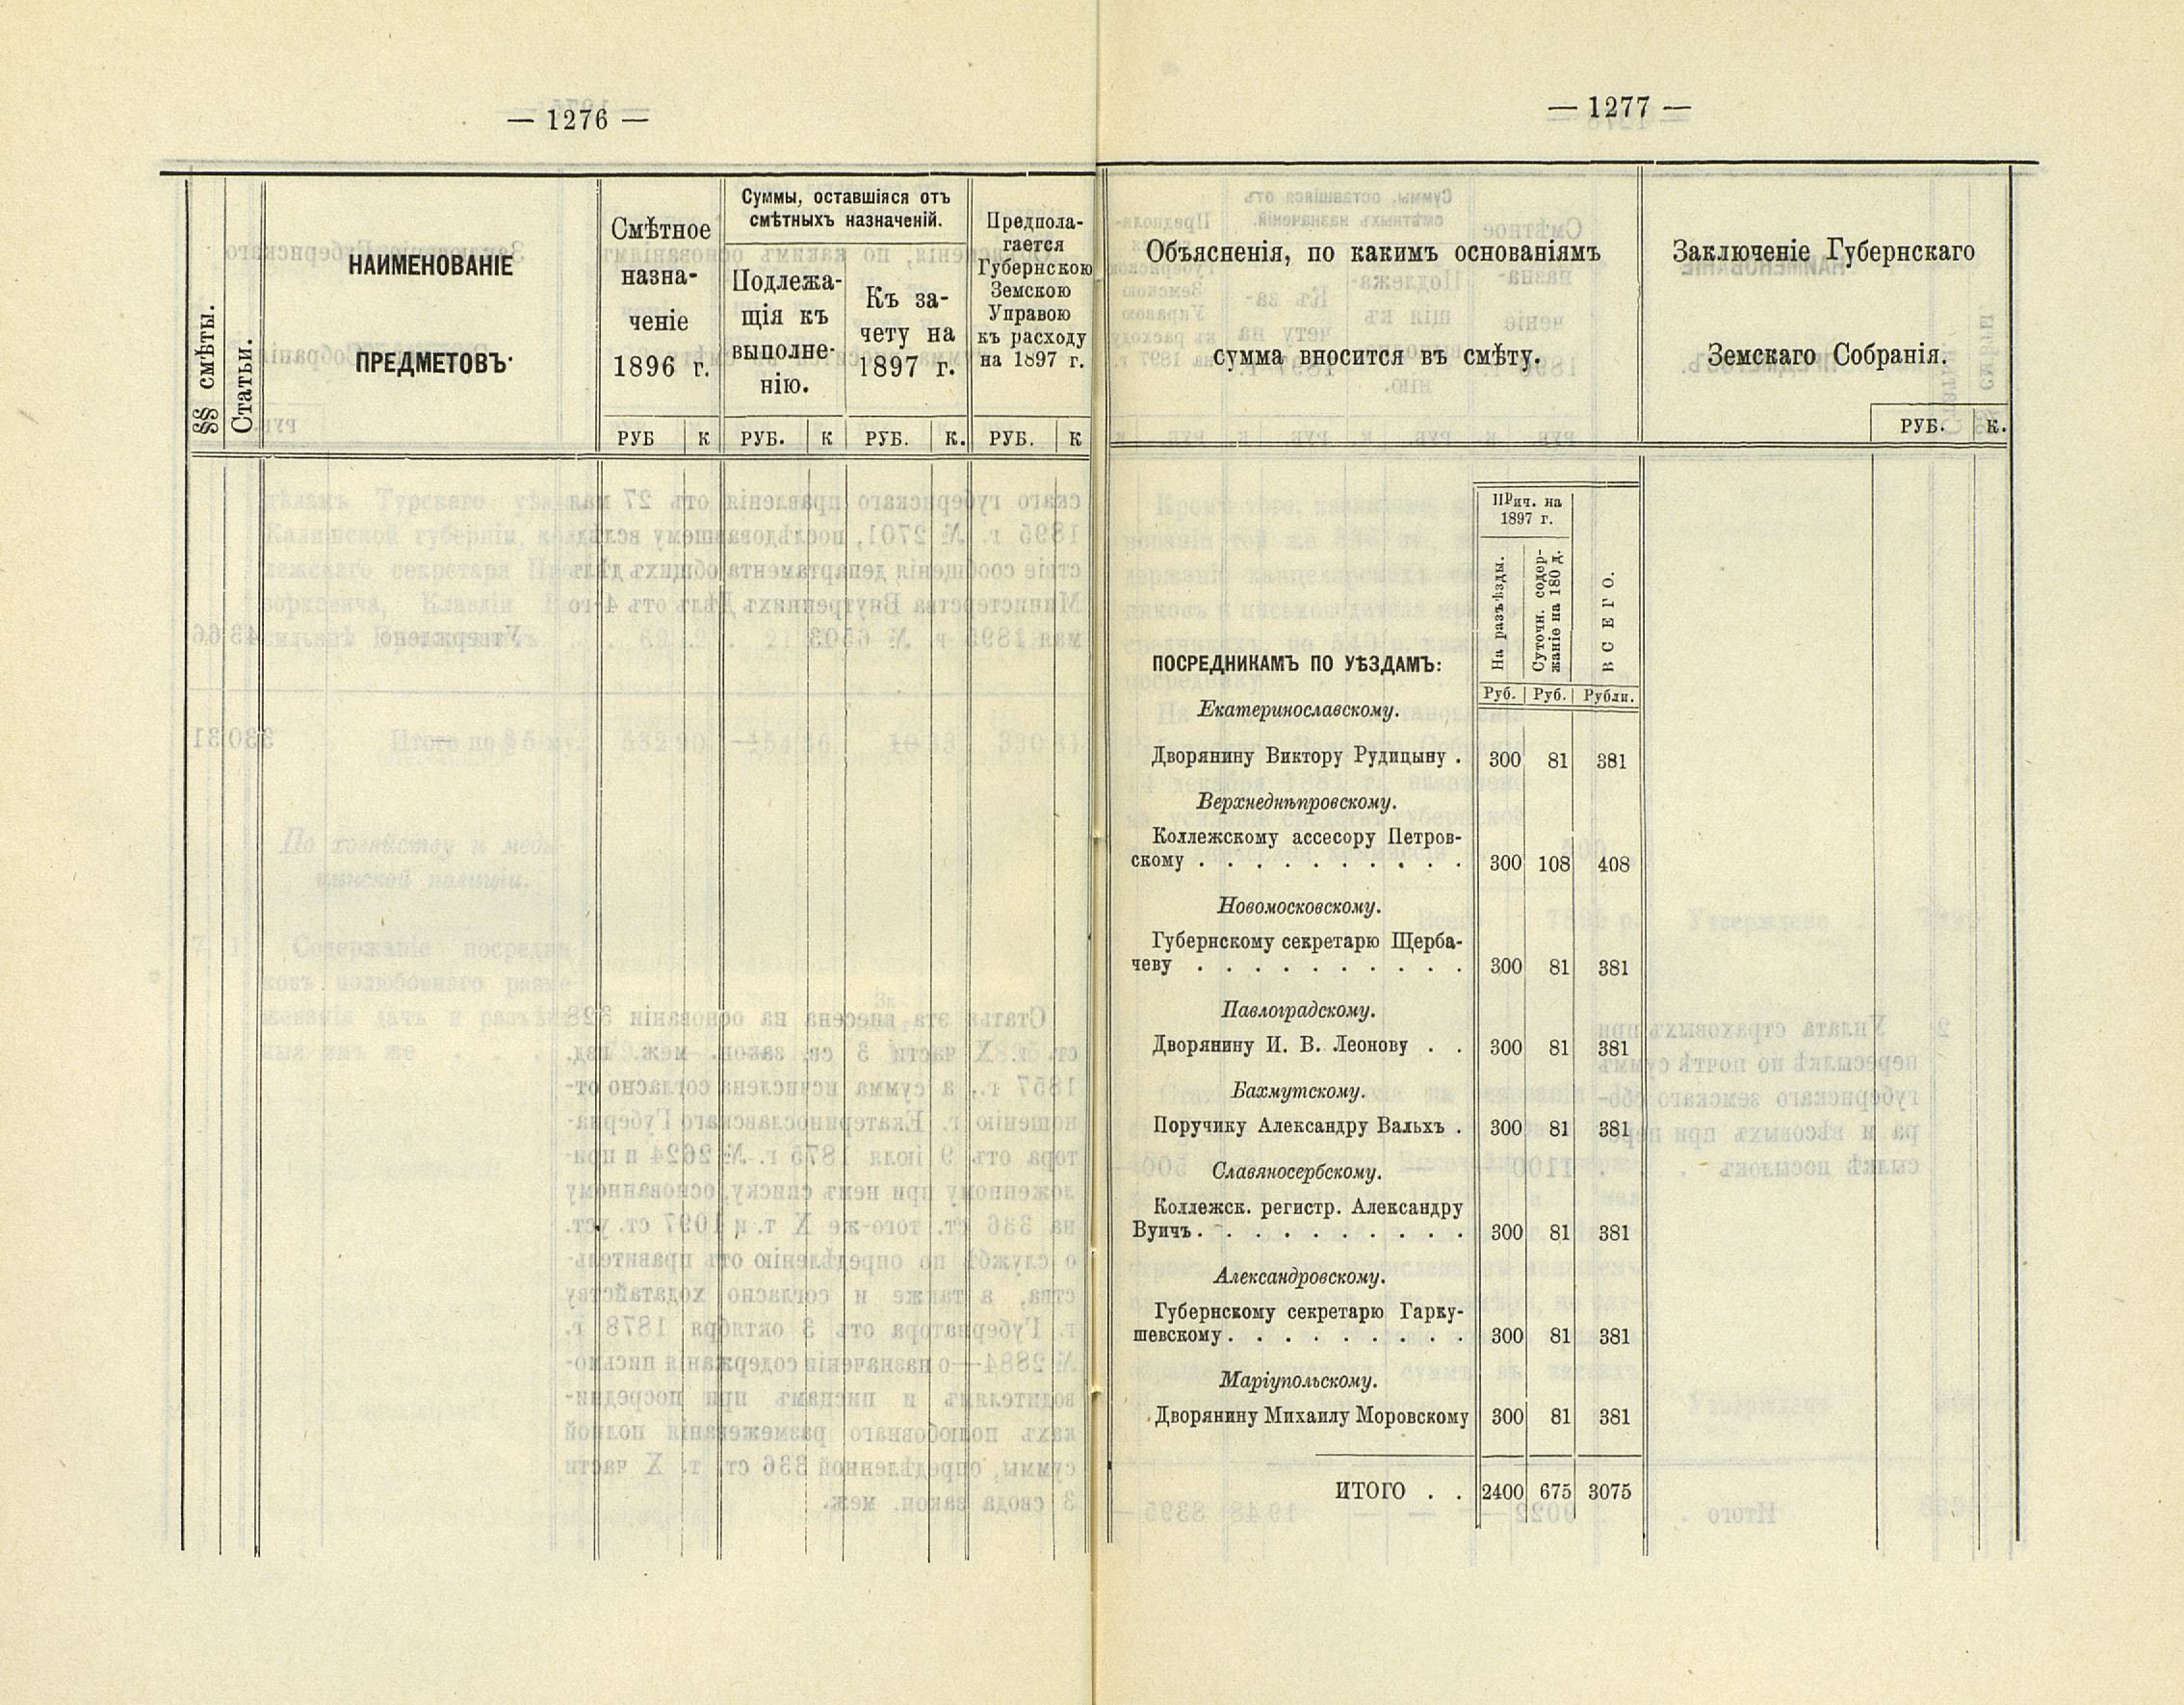 — 1276 —
§§ смѣты.
Статьи.
НАИМЕНОВАНІЕ
ПРЕДМЕТОВЪ·
Смѣтное
назна-
ченіе
1896 г.
Суммы, оставшіяся отъ
смѣтныхъ назначеній.
Подлежа-
щія къ
выполне-
нію.
Къ за-
чету на
1897 г.
Предпола-
гается
Губернскою
Земскою
Управою
къ расходу
на 1897 г.
РУБ К РУБ. К РУБ. К. РУБ. К
— 1277 —
Объясненія, по какимъ основаніямъ
сумма вносится въ смѣту.
Заключеніе Губернскаго
Земскаго Собранія.
РУБ. К.
Прич. на
1897 г.
На разъѣзды.
Суточн. содер-
жаніе на 180 д.
ВСЕГО.
Руб. Руб. Рубли.
ПОСРЕДНИКАМЪ ПО УѢЗДАМЪ:
Екатеринославскому.
Дворянину Виктору Рудицыну . 300 81 381
Верхнеднѣпровскому.
Коллежскому ассесору Петров-
скому . . . . . . . . . . 300 108 408
Новомосковскому.
Губернскому секретарю Щерба-
чеву . . . . . . . . . . 300 81 381
Павлоградскому.
Дворянину И. В. Леонову . . 300 81 381
Бахмутскому.
Поручику Александру Вальхъ . 300 81 381
Славяносербскому.
Коллежск. регистр. Александру
Вуичъ . . . . . . . . . . 300 81 381
Александровскому.
Губернскому секретарю Гарку-
шевскому . . . . . . . . . 300 81 381
Маріупольскому.
Дворянину Михаилу Моровскому 300 81 381
ИТОГО . . 2400 675 3075